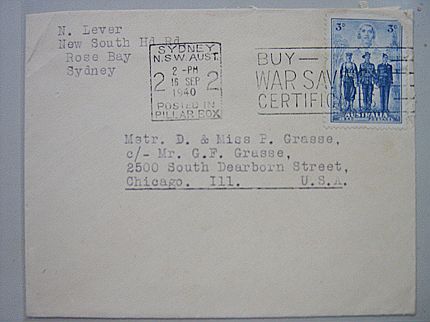 N. Lever
New South Hd Rd
Rose Bay
Sydney
SYDNEY
N.S.W. AUST.
2 -PM
2 16 SEP 2
1940
POSTED IN
PILLAR BOX
BUY —
WAR SAV
CERTIFIC
3D 3D
AUSTRALIA
Mstr. D. & Miss P. Grasse,
c/- Mr. G.F. Grasse,
2500 South Dearborn Street,
Chicago. Ill. U.S.A.